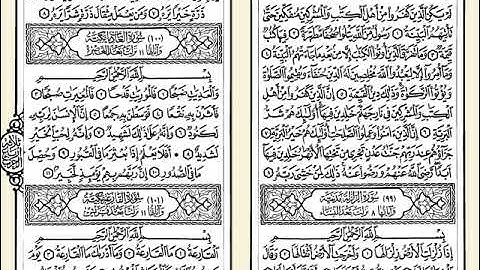 لَمْ يَكُنِ الَّذِينَ كَفَرُوا مِنْ أَهْلِ الْكِتَٰبِ وَالْمُشْرِكِينَ مُنفَكِّينَ حَتَّىٰ
تَأْتِيَهُمُ الْبَيِّنَةُ ١ رَسُولٌ مِّنَ اللَّهِ يَتْلُوا صُحُفًا مُّطَهَّرَةً ٢ فِيهَا كُتُبٌ
قَيِّمَةٌ ٣ وَمَا تَفَرَّقَ الَّذِينَ أُوتُوا الْكِتَٰبَ إِلَّا مِن بَعْدِ مَا جَاءَتْهُمُ الْبَيِّنَةُ ٤
وَمَا أُمِرُوا إِلَّا لِيَعْبُدُوا اللَّهَ مُخْلِصِينَ لَهُ الدِّينَ حُنَفَاءَ وَيُقِيمُوا الصَّلَوٰةَ
وَيُؤْتُوا الزَّكَوٰةَ وَذَٰلِكَ دِينُ الْقَيِّمَةِ ٥ إِنَّ الَّذِينَ كَفَرُوا مِنْ أَهْلِ
الْكِتَٰبِ وَالْمُشْرِكِينَ فِي نَارِ جَهَنَّمَ خَٰلِدِينَ فِيهَا أُولَٰئِكَ هُمْ شَرُّ
الْبَرِيَّةِ ٦ إِنَّ الَّذِينَ ءَامَنُوا وَعَمِلُوا الصَّٰلِحَٰتِ أُولَٰئِكَ هُمْ خَيْرُ الْبَرِيَّةِ ٧
جَزَاؤُهُمْ عِندَ رَبِّهِمْ جَنَّٰتُ عَدْنٍ تَجْرِي مِن تَحْتِهَا الْأَنْهَٰرُ خَٰلِدِينَ فِيهَا
أَبَدًا رَّضِيَ اللَّهُ عَنْهُمْ وَرَضُوا عَنْهُ ذَٰلِكَ لِمَنْ خَشِيَ رَبَّهُ ٨
(٩٩) سُورَةُ الزَّلْزَلَةِ مَدَنِيَّةٌ
وَآيَاتُهَا ٨ نَزَلَتْ بَعْدَ النِّسَاءِ
بِسْمِ اللَّهِ الرَّحْمَٰنِ الرَّحِيمِ
إِذَا زُلْزِلَتِ الْأَرْضُ زِلْزَالَهَا ١ وَأَخْرَجَتِ الْأَرْضُ أَثْقَالَهَا ٢ وَقَالَ
ذَرَّةٍ خَيْرًا يَرَهُ ٧ وَمَن يَعْمَلْ مِثْقَالَ ذَرَّةٍ شَرًّا يَرَهُ ٨
(١٠٠) سُورَةُ الْعَادِيَاتِ مَكِّيَّةٌ
وَآيَاتُهَا ١١ نَزَلَتْ بَعْدَ الْعَصْرِ
بِسْمِ اللَّهِ الرَّحْمَٰنِ الرَّحِيمِ
وَالْعَٰدِيَٰتِ ضَبْحًا ١ فَالْمُورِيَٰتِ قَدْحًا ٢ فَالْمُغِيرَٰتِ صُبْحًا ٣
فَأَثَرْنَ بِهِ نَقْعًا ٤ فَوَسَطْنَ بِهِ جَمْعًا ٥ إِنَّ الْإِنسَٰنَ لِرَبِّهِ
لَكَنُودٌ ٦ وَإِنَّهُ عَلَىٰ ذَٰلِكَ لَشَهِيدٌ ٧ وَإِنَّهُ لِحُبِّ الْخَيْرِ
لَشَدِيدٌ ٨ أَفَلَا يَعْلَمُ إِذَا بُعْثِرَ مَا فِي الْقُبُورِ ٩ وَحُصِّلَ
مَا فِي الصُّدُورِ ١٠ إِنَّ رَبَّهُم بِهِمْ يَوْمَئِذٍ لَّخَبِيرٌ ١١
(١٠١) سُورَةُ الْقَارِعَةِ مَكِّيَّةٌ
وَآيَاتُهَا ١١ نَزَلَتْ بَعْدَ قُرَيْشٍ
بِسْمِ اللَّهِ الرَّحْمَٰنِ الرَّحِيمِ
الْقَارِعَةُ ١ مَا الْقَارِعَةُ ٢ وَمَا أَدْرَىٰكَ مَا الْقَارِعَةُ ٣ يَوْمَ